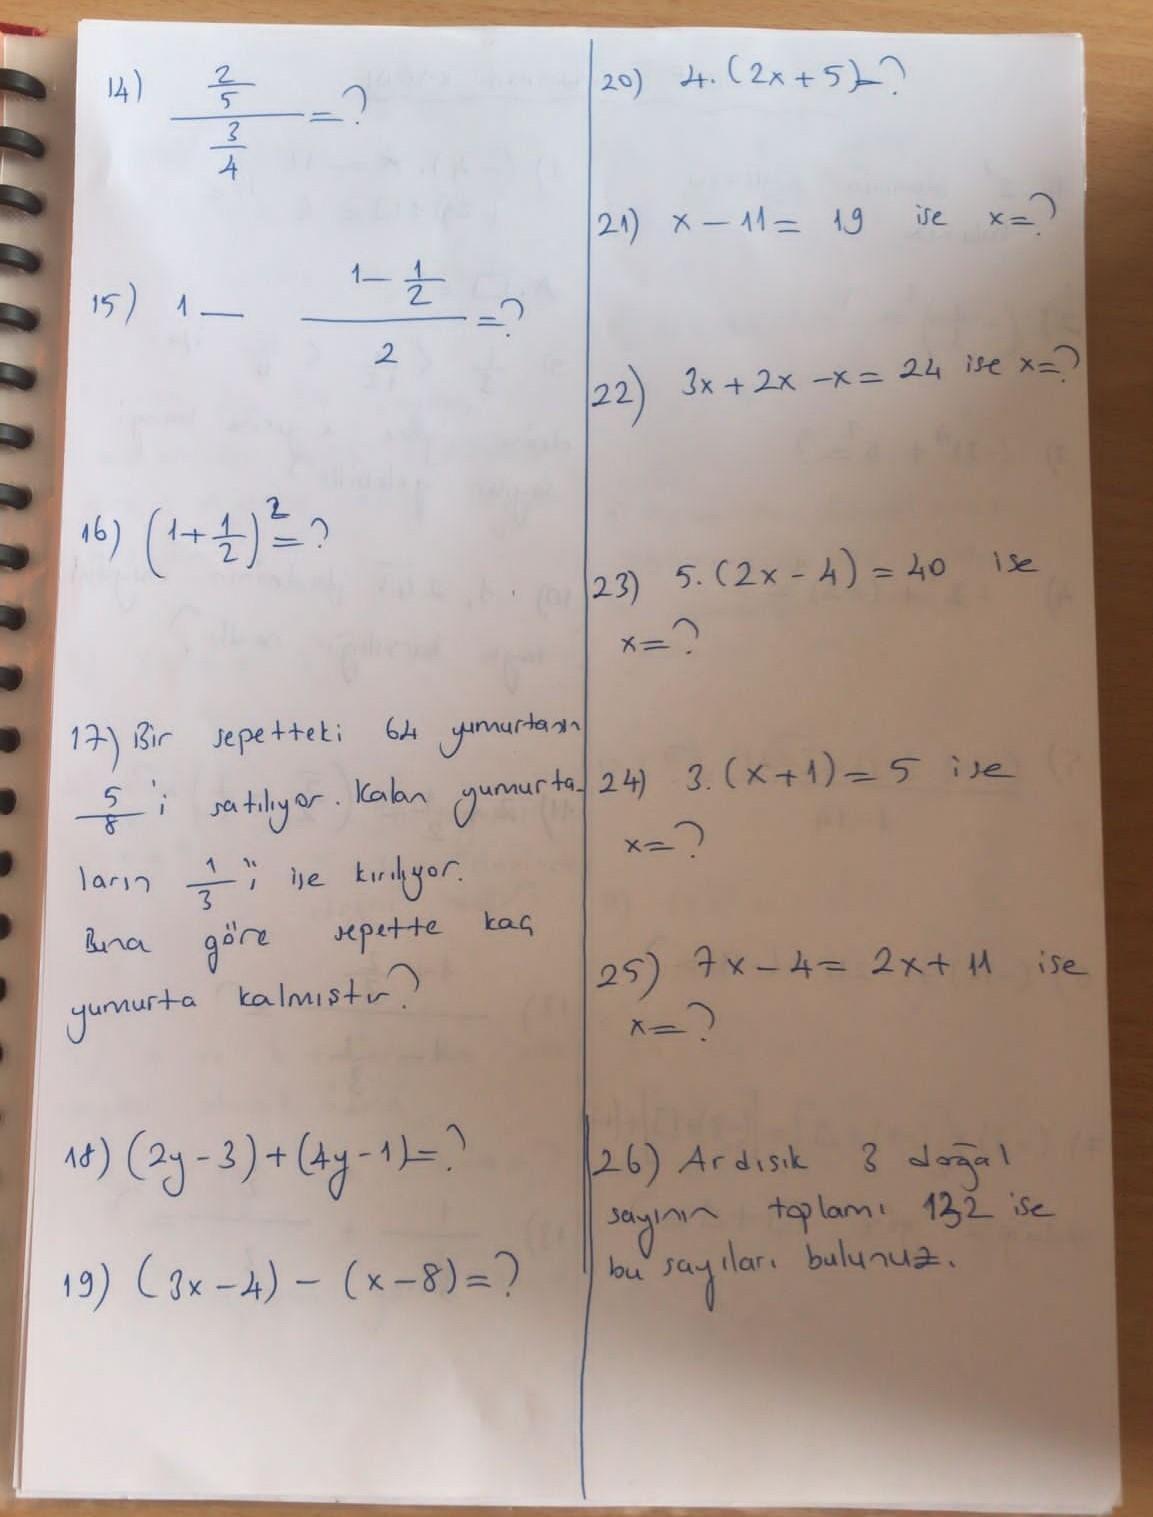 14) 2/5 / 3/4 = ?
15) 1 — (1 - 1/2) / 2 = ?
16) (1 + 1/2)² = ?
17) Bir sepetteki 64 yumurtanın
5/8 'i satılıyor. Kalan yumurta-
ların 1/3 'i ise kırılıyor.
Buna göre sepette kaç
yumurta kalmıştır?
18) (2y - 3) + (4y - 1) = ?
19) (3x - 4) - (x - 8) = ?
20) 4. (2x + 5) = ?
21) x - 11 = 19 ise x = ?
22) 3x + 2x - x = 24 ise x = ?
23) 5. (2x - 4) = 40 ise
x = ?
24) 3. (x + 1) = 5 ise
x = ?
25) 7x - 4 = 2x + 11 ise
x = ?
26) Ardışık 3 doğal
sayının toplamı 132 ise
bu sayıları bulunuz.